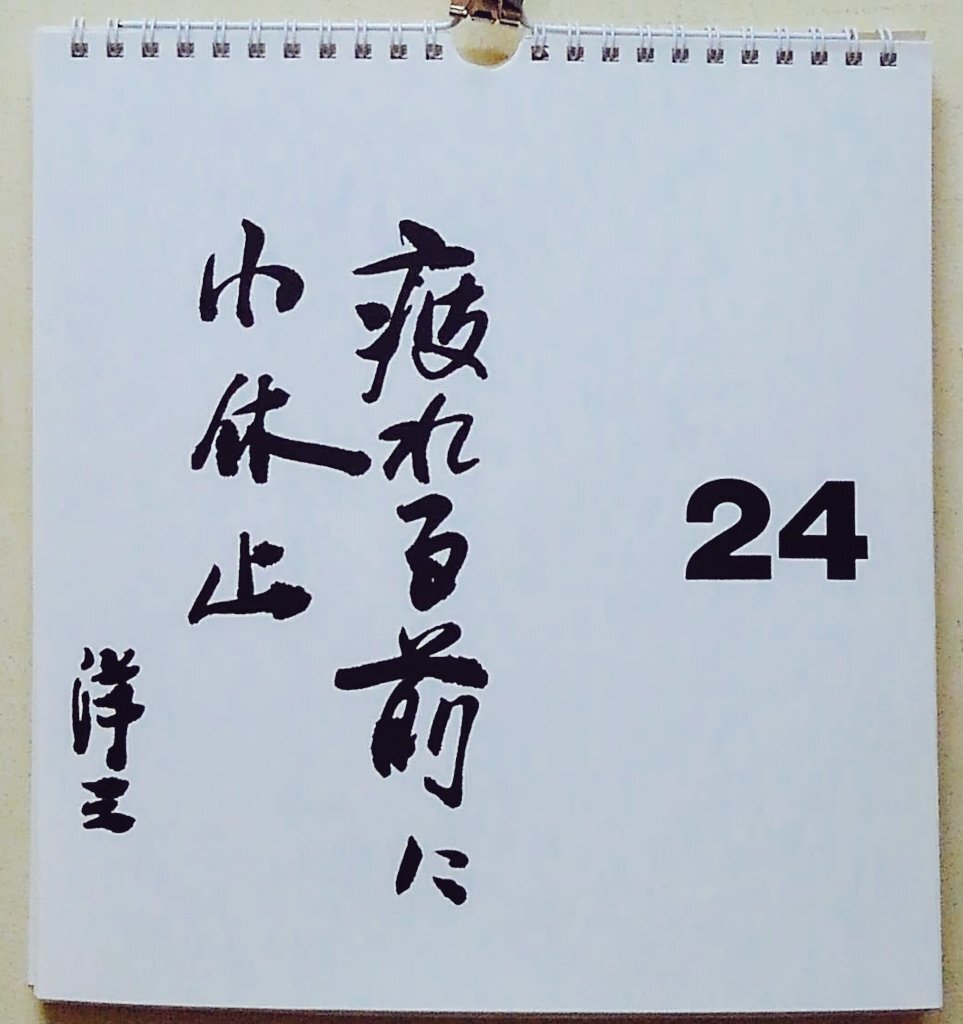 24
疲れる前に
小休止
洋三